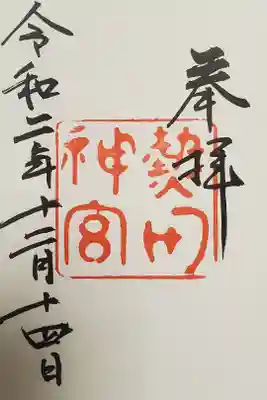 奉拝
熱田
神宮
令和二年十二月十四日